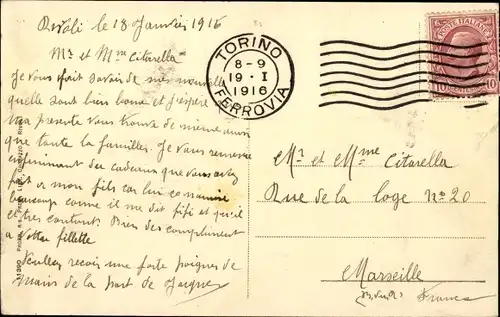 Rivoli le 18 Janvier 1916
Mr et Mme Citarella
Je vous fait savoir de mes nouvelle
quelle sont bien bone et j'espère
ma presente vous trouve de meme ainsi
que toute la familles. Je vous remercie
infiniment des cadeaux que vous avez
fait a mon fils car lui
beaucoup come il me dit fifi et qu'il
et tres contant. Bien des compliment
a votre fillette
Veulles recois une forte poignes de
mains de la part de Jacques
TORINO
8-9
19·I
1916
FERROVIA
POSTE ITALIANE
10 10
Mr et Mme Citarella
Rue de la loge No 20
Marseille
France
11390